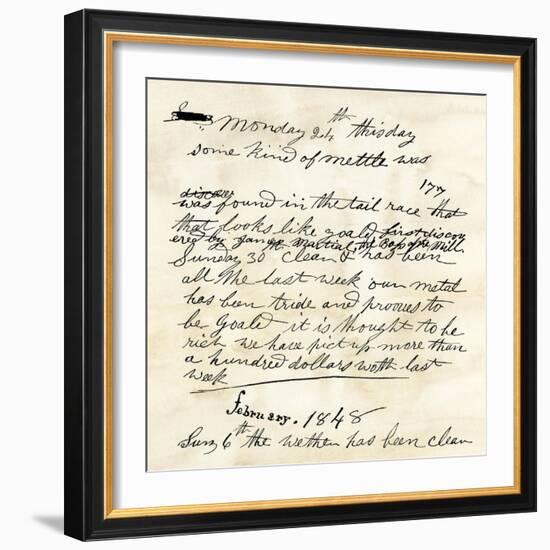 Monday 24th this day
some kind of mettle was
177
was found in the tail race that
that looks like goald first discov
ered by James Martial, the Boss of the Mill
Sunday 30th clean & has been
all the last week our metal
has been tride and prooves to
be goald it is thought to be
rich we have pict up more than
a hundred dollars woth last
week
february. 1848
Sun 6th the wether has been clean